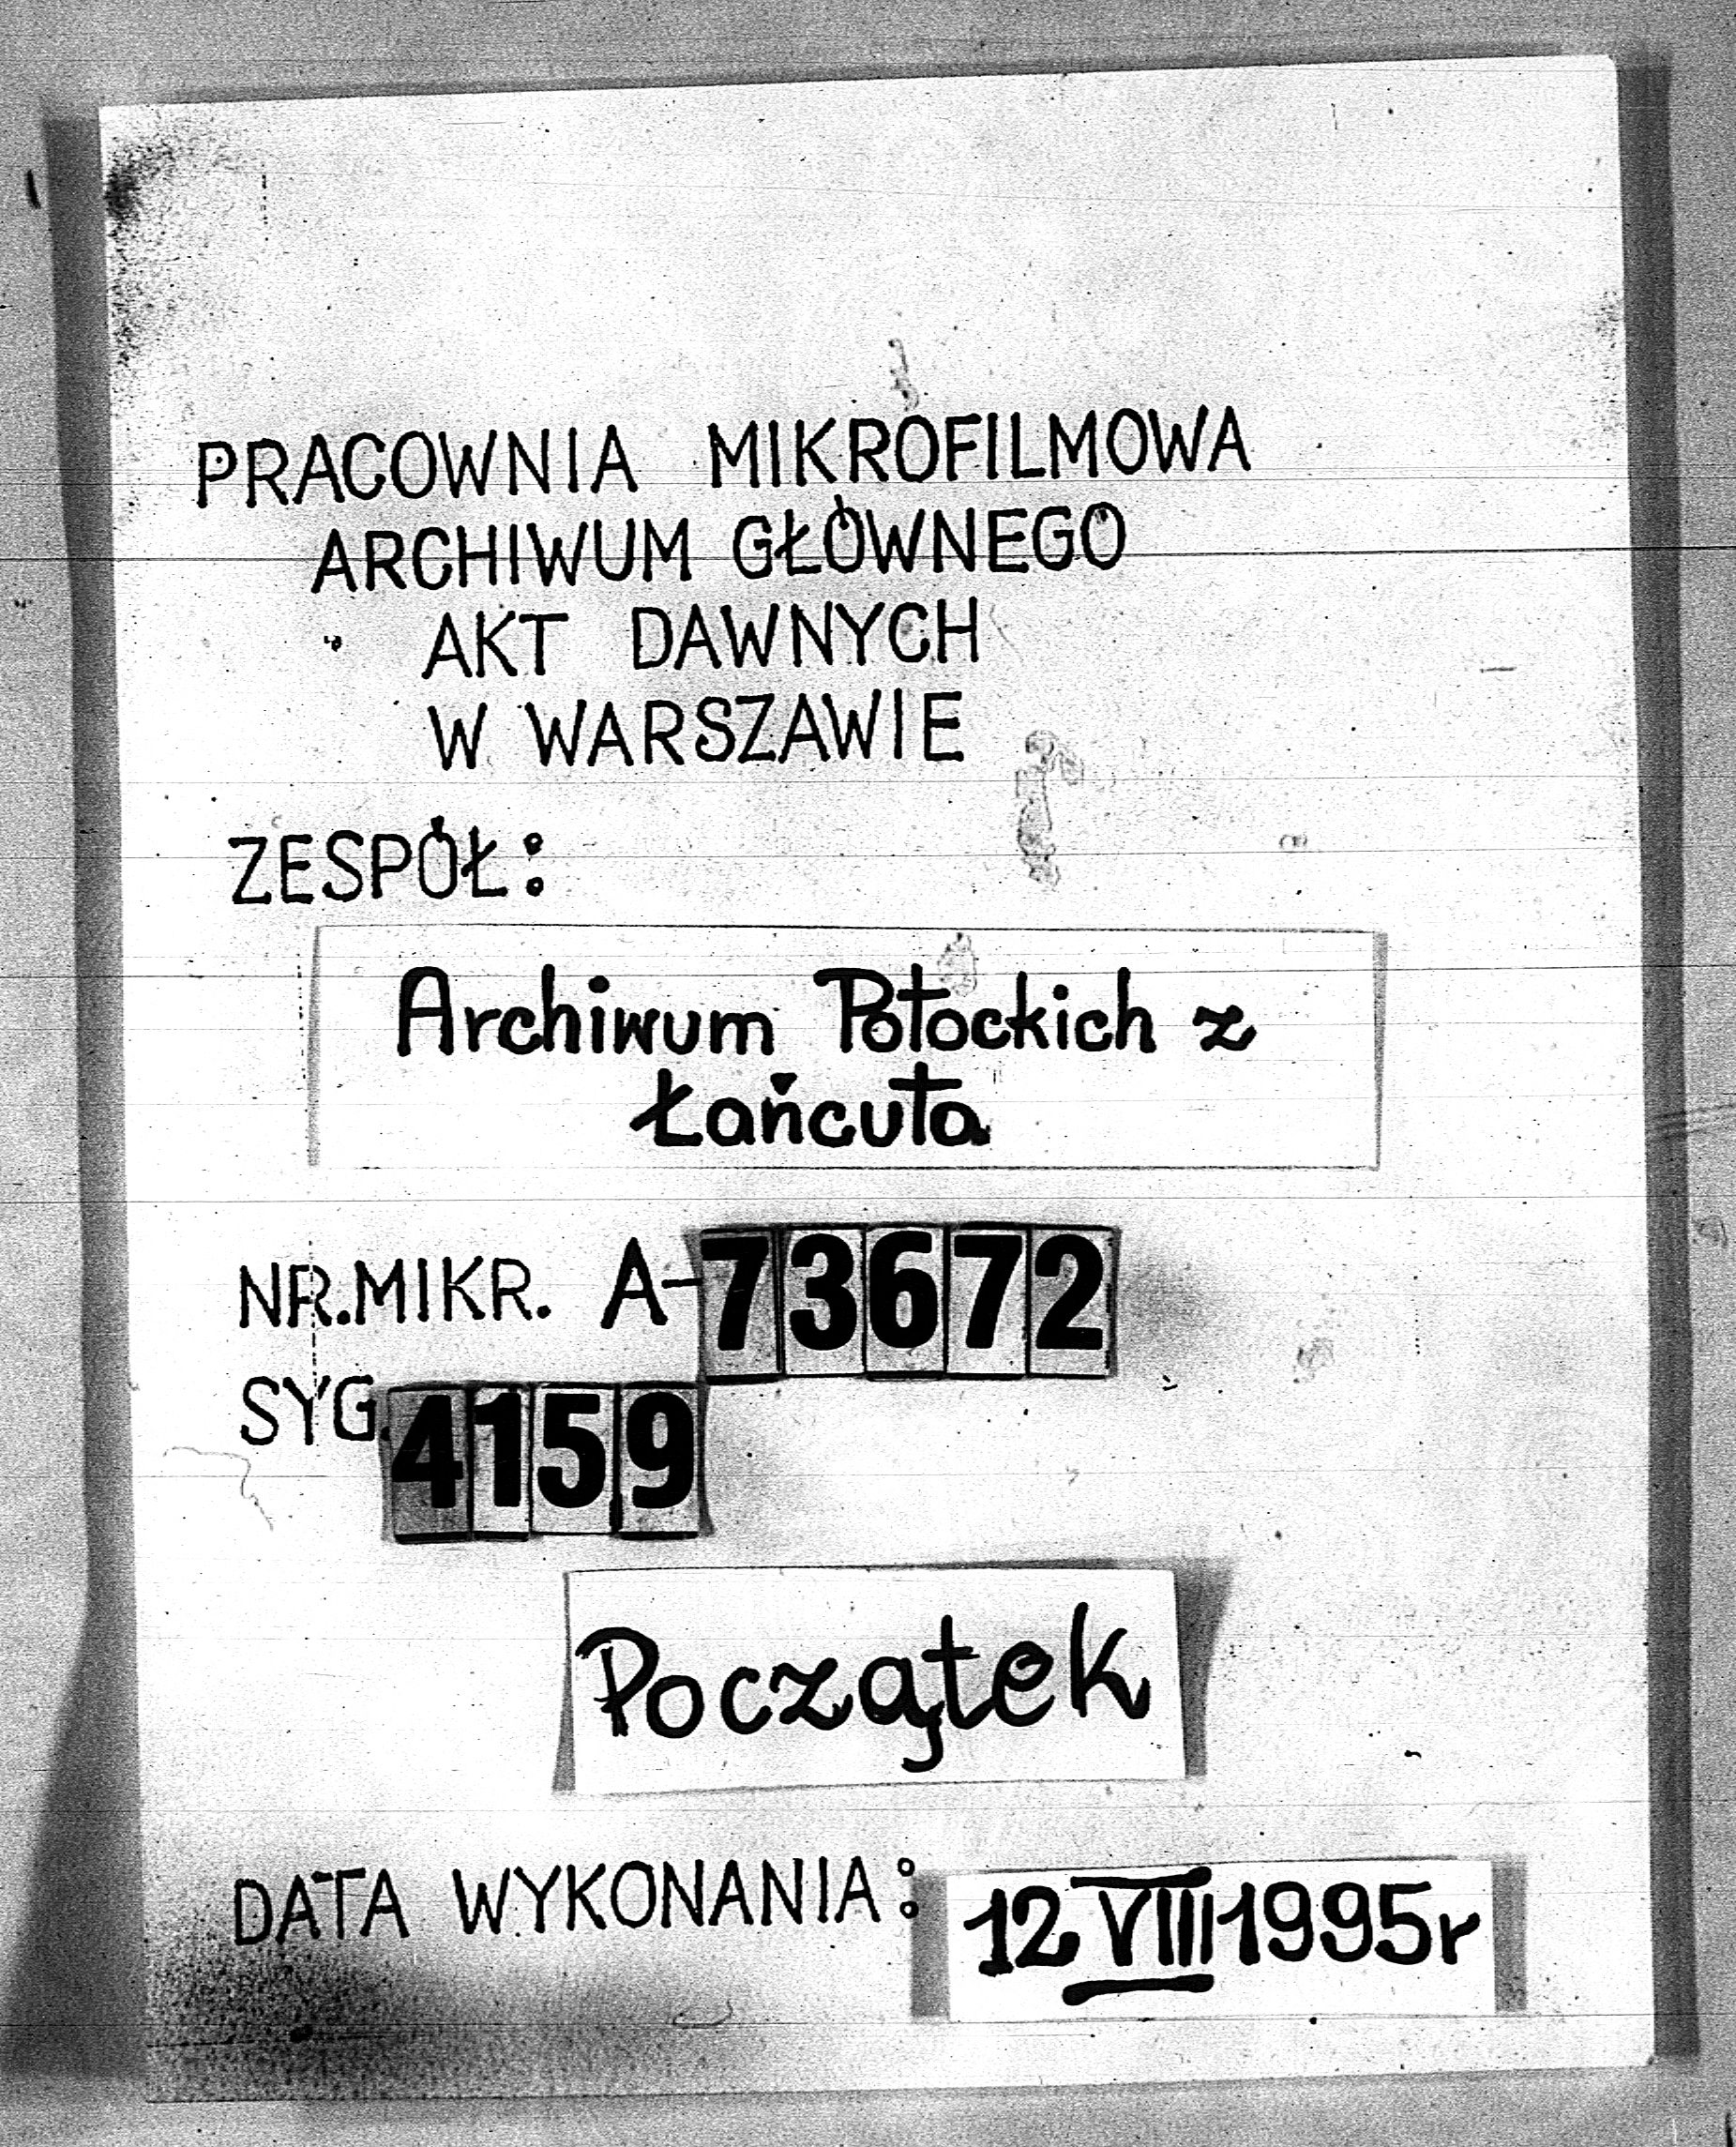 PRACOWNIA MIKROFILMOWA
ARCHIWUM GŁÓWNEGO
AKT DAWNYCH
W WARSZAWIE
ZESPÓŁ:
Archiwum Potockich z
Łańcuta
NR.MIKR. A-73672
SYG.4159
Początek
DATA WYKONANIA: 12 VIII 1995r